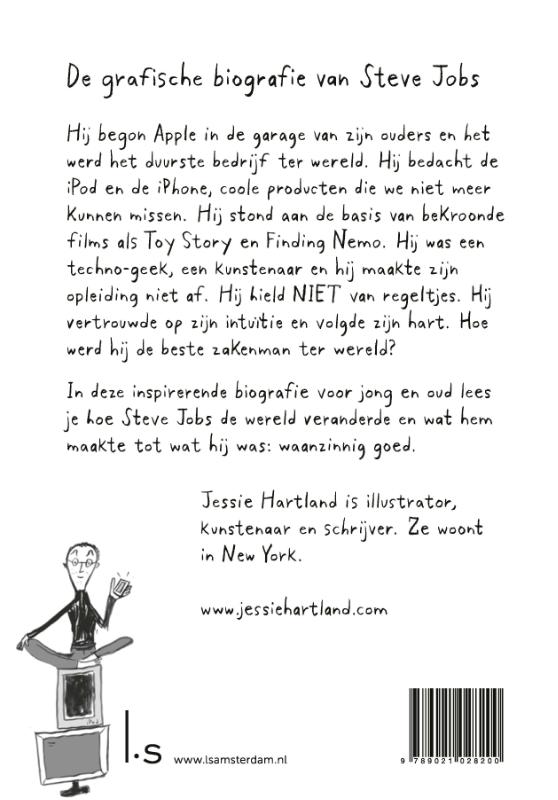 De grafische biografie van Steve Jobs
Hij begon Apple in de garage van zijn ouders en het
werd het duurste bedrijf ter wereld. Hij bedacht de
iPod en de iPhone, coole producten die we niet meer
kunnen missen. Hij stond aan de basis van bekroonde
films als Toy Story en Finding Nemo. Hij was een
techno-geek, een kunstenaar en hij maakte zijn
opleiding niet af. Hij hield NIET van regeltjes. Hij
vertrouwde op zijn intuïtie en volgde zijn hart. Hoe
werd hij de beste zakenman ter wereld?
In deze inspirerende biografie voor jong en oud lees
je hoe Steve Jobs de wereld veranderde en wat hem
maakte tot wat hij was: waanzinnig goed.
Jessie Hartland is illustrator,
kunstenaar en schrijver. Ze woont
in New York.
www.jessiehartland.com
l.s www.lsamsterdam.nl
9 789021 028200